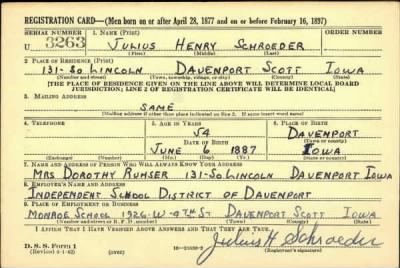 REGISTRATION CARD—(Men born on or after April 28, 1877 and on or before February 16, 1897)
SERIAL NUMBER 1. NAME (Print) ORDER NUMBER
U 3263 JULIUS HENRY SCHROEDER
(First) (Middle) (Last)
2. PLACE OF RESIDENCE (Print)
131-SO LINCOLN DAVENPORT SCOTT IOWA
(Number and street) (Town, township, village, or city) (County) (State)
[THE PLACE OF RESIDENCE GIVEN ON THE LINE ABOVE WILL DETERMINE LOCAL BOARD
JURISDICTION; LINE 2 OF REGISTRATION CERTIFICATE WILL BE IDENTICAL]
3. MAILING ADDRESS
SAME
(Mailing address if other than place indicated on line 2. If same insert word same)
4. TELEPHONE 5. AGE IN YEARS 6. PLACE OF BIRTH
54 DAVENPORT
DATE OF BIRTH (Town or county)
JUNE 6 1887 IOWA
(Exchange) (Number) (Mo.) (Day) (Yr.) (State or country)
7. NAME AND ADDRESS OF PERSON WHO WILL ALWAYS KNOW YOUR ADDRESS
MRS DOROTHY RUMSER 131-SO LINCOLN DAVENPORT IOWA
8. EMPLOYER'S NAME AND ADDRESS
INDEPENDENT SCHOOL DISTRICT OF DAVENPORT
9. PLACE OF EMPLOYMENT OR BUSINESS
MONROE SCHOOL 1926-W-4TH ST DAVENPORT SCOTT IOWA
(Number and street or R. F. D. number) (Town) (County) (State)
I AFFIRM THAT I HAVE VERIFIED ABOVE ANSWERS AND THAT THEY ARE TRUE.
D. S. S. Form 1 Julius H Schroeder
(Revised 4-1-42) (over) (Registrant's signature)